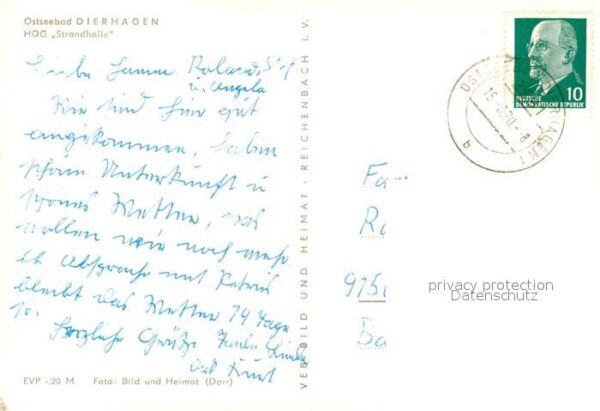 Ostseebad DIERHAGEN
HOG „Strandhalle"
Liebe Roland,
u. Angela
Wir sind hier gut
angekommen, haben
schöne Unterkunft u
schönes Wetter, was
wollen wir noch mehr
lt Absprache mit Petrus
bleibt das Wetter 14 Tage
so. Herzliche Grüße
und
EVP -,20 M Foto: Bild und Heimat (Darr)
VEB BILD UND HEIMAT · REICHENBACH I. V.
10
DEUTSCHE
DEMOKRATISCHE REPUBLIK
Fa
R
915
Ba
privacy protection
Datenschutz